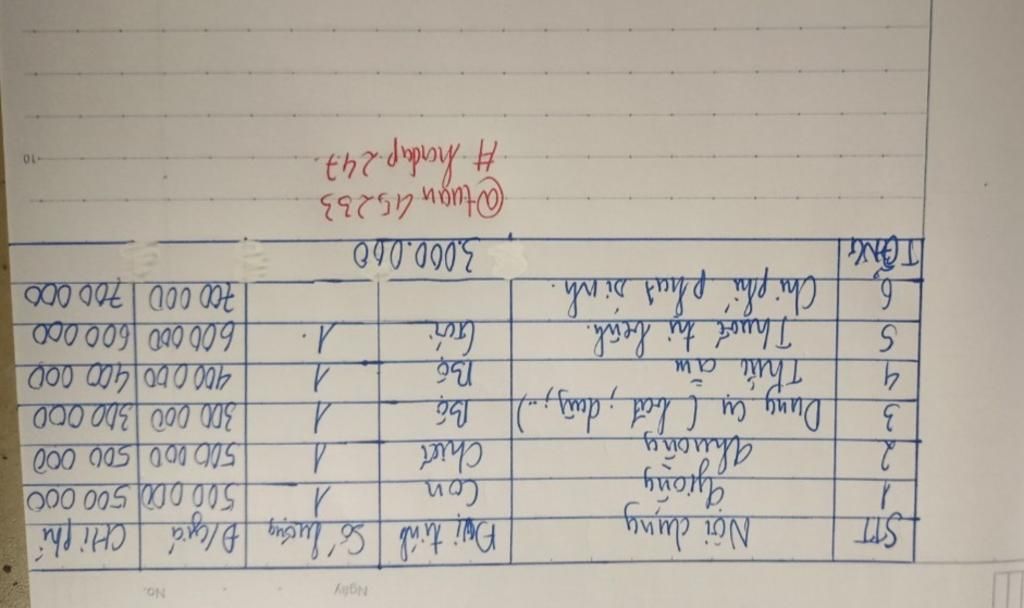 Ngày No.
STT Nội dung Đại tính Số lượng Đ/giá CHi phí
1 Giống Con 1 500 000 500 000
2 Chuồng Chiếc 1 500 000 500 000
3 Dụng cụ ( bát, dây,...) Bộ 1 300 000 300 000
4 Thức ăn Bộ 1 400 000 400 000
5 Thuốc trị bệnh. Gói 1 600 000 600 000
6 Chi phí phát sinh. 700 000 700 000
TỔNG 3.000.000
@tuan 45233
# hoidap 247.
10